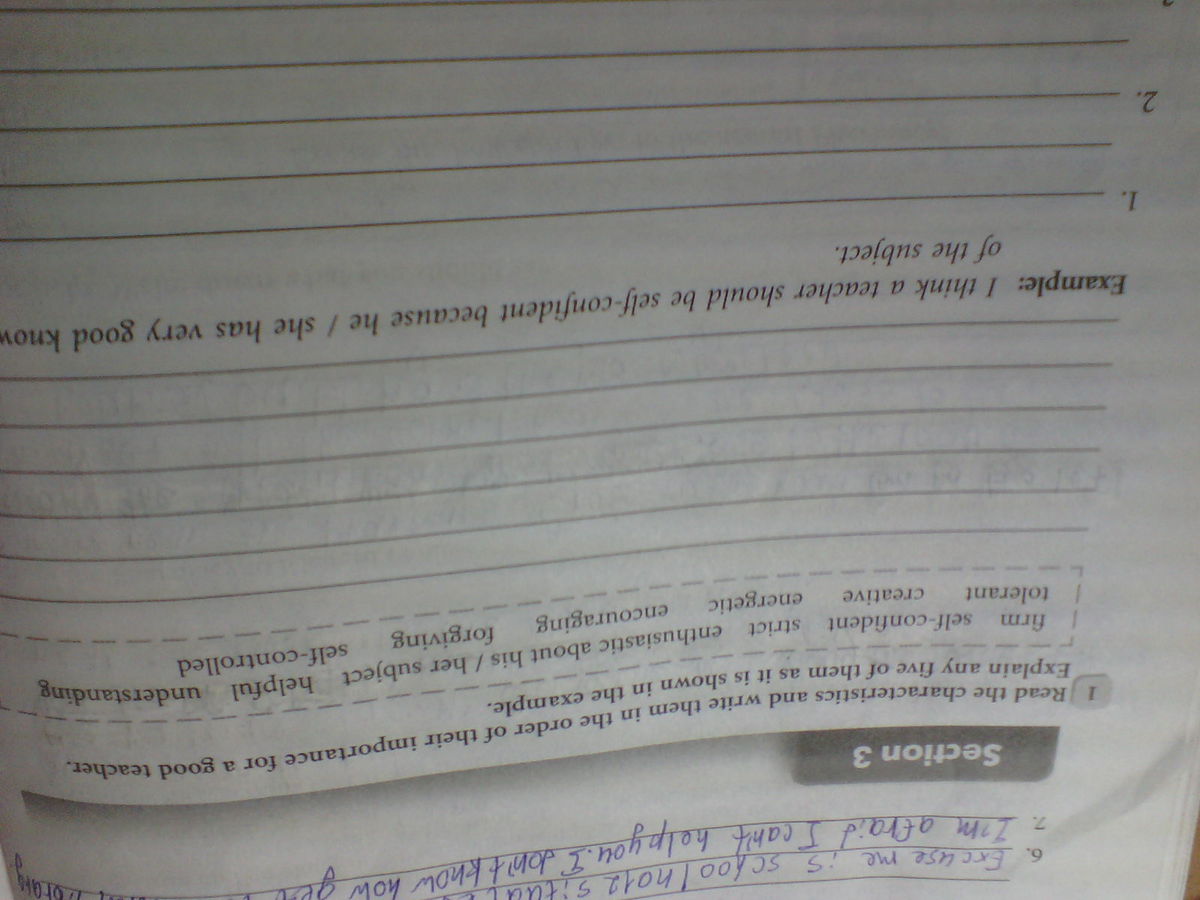 6. Excuse me is school no12
7. I'm afraid I can't help you. I don't know how get
Section 3
1 Read the characteristics and write them in the order of their importance for a good teacher.
Explain any five of them as it is shown in the example.
firm self-confident strict enthusiastic about his / her subject helpful understanding
tolerant creative energetic encouraging forgiving self-controlled
Example: I think a teacher should be self-confident because he / she has very good know
of the subject.
1.
2.